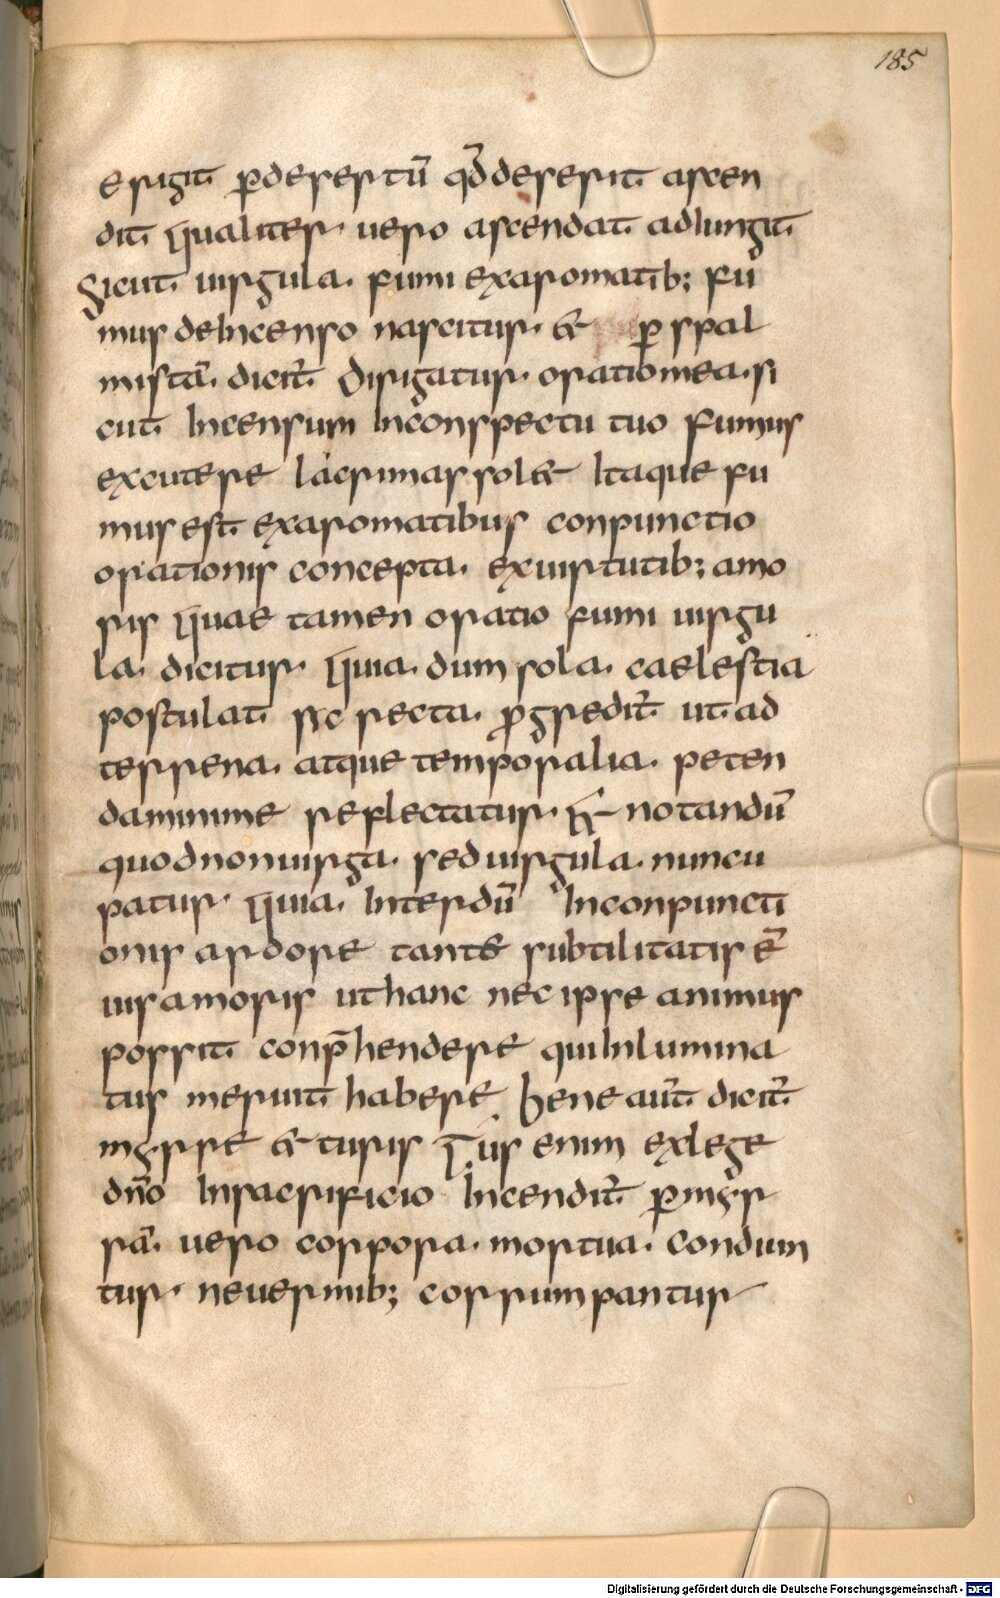 185
erigit p̄desertū qđ deserit ascen
dit. qualiter. uero ascendat. adiungit.
Sicut. uirgula. fumi exaromatib; fu
mus deIncenso nascitur. & p̄ spal
mistā. dicit̄. Dirigatur. oratio mea. si
cut. Incensum Inconspectu tuo fumus
excutere lacrimas sol& Itaque fu
mus est. exaromatibus conpunctio
orationis concepta. exuirtutib; amo
ris quae tamen oratio fumi uirgu
la. dicitur. quia. dum sola. caelestia
postulat. sic recta. p̄gredit̄. ut. ad
terrena. atque temporalia. peten
da minime reflectatur. & notandū
quod non uirga. sed uirgula. nuncu
patur. quia. Interdū Inconpuncti
onis ardore tantę subtilitatis ē
uis amoris ut hanc nec ipse animus
possit. conp̄hendere qui Inlumina
tus meruit. habere bene aut̄. dicit̄.
mÿrre & turis Tus enim exlege
dn̄o Insacrificio Incendit̄. p̄ mÿr
rā. uero corpora. mortua. condiun
tur. ne uermib; corrumpantur
Digitalisierung gefördert durch die Deutsche Forschungsgemeinschaft - DFG